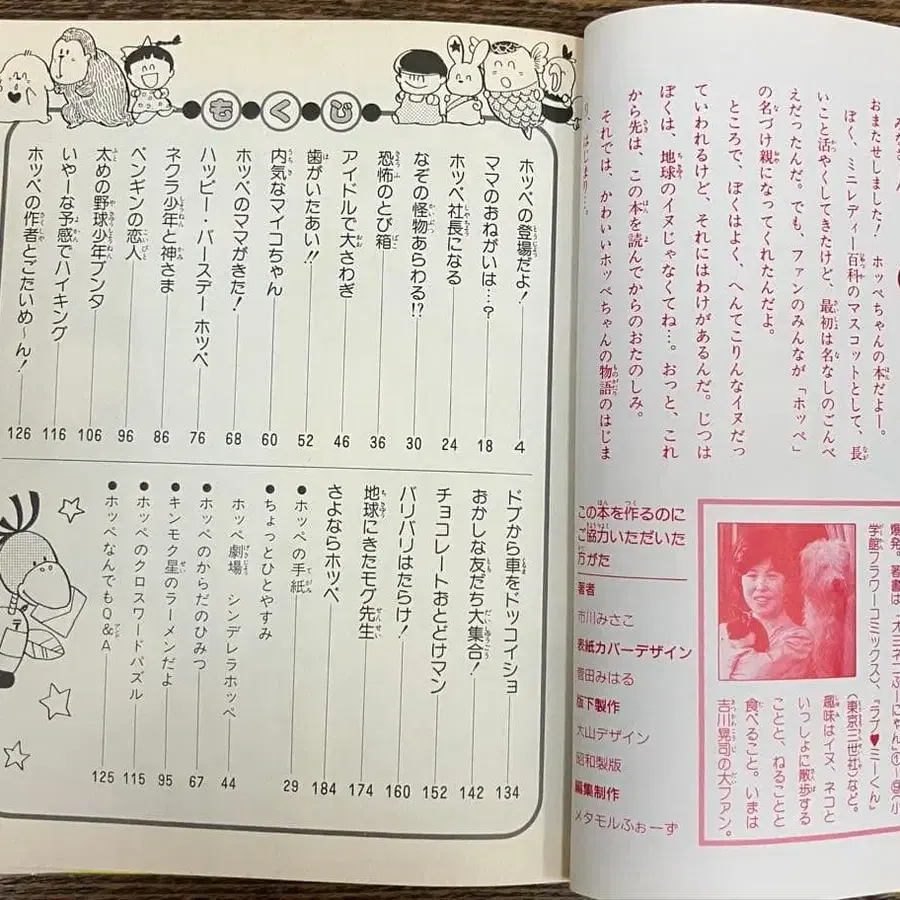 おまたせしました! ホッペちゃんの本だよー。
ぼく、ミニレディー百科のマスコットとして、長
いこと活やくしてきたけど、最初は名なしのごんべ
えだったんだ。でも、ファンのみんなが「ホッペ」
の名づけ親になってくれたんだよ。
ところで、ぼくはよく、へんてこりんなイヌだっ
ていわれるけど、それにはわけがあるんだ。じつは
ぼくは、地球のイヌじゃなくてね…。おっと、これ
から先は、この本を読んでからのおたのしみ。
それでは、かわいいホッペちゃんの物語のはじま
り、はじまり…。
学館フラワーコミックス)、『ラブ♥ミーくん』
(東京三世社)など。
趣味はイヌ、ネコと
いっしょに散歩する
ことと、ねることと
食べること。いまは
吉川晃司の大ファン。
この本を作るのに
ご協力いただいた
方がた
著者
市川みさこ
表紙カバーデザイン
菅田みはる
版下製作
大山デザイン
昭和製版
編集制作
メタモルふぉーず
もくじ
ホッペの登場だよ! 4
ママのおねがいは…? 18
ホッペ社長になる 24
なぞの怪物あらわる!? 30
恐怖のとび箱 36
アイドルで大さわぎ 46
歯がいたあい!! 52
内気なマイコちゃん 60
ホッペのママがきた! 68
ハッピー・バースデー ホッペ 76
ネクラ少年と神さま 86
ペンギンの恋人 96
太めの野球少年ブンタ 106
いやーな予感でハイキング 116
ホッペの作者とごたいめ〜ん! 126
ドブから車をドッコイショ 134
おかしな友だち大集合! 142
チョコレートおとどけマン 152
バリバリはたらけ! 160
地球にきたモグ先生 174
さよならホッペ 184
●ホッペの手紙 29
●ちょっとひとやすみ
ホッペ劇場 シンデレラホッペ 44
●ホッペのからだのひみつ 67
●キンモク星のラーメンだよ 95
●ホッペのクロスワードパズル 115
●ホッペなんでもQ&A 125